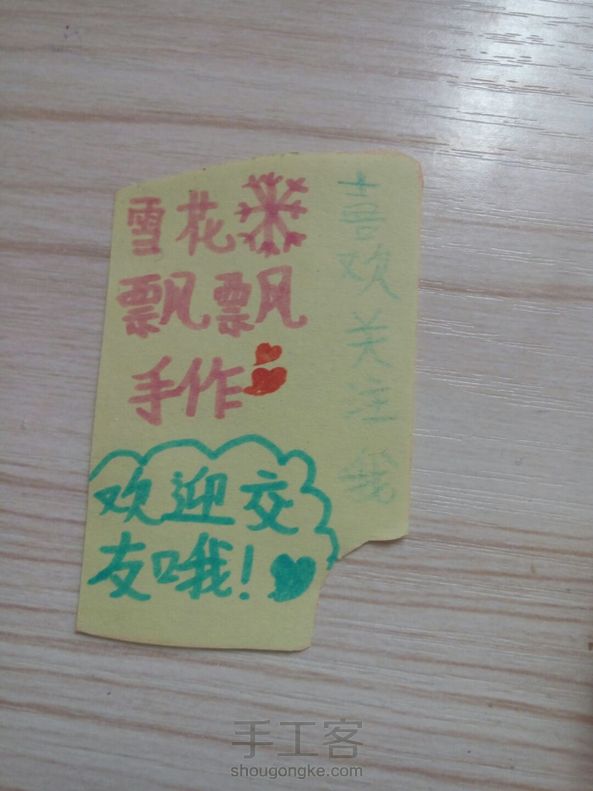 雪花
飘飘
手作
喜欢关注我
欢迎交
友哦!
手工客
shougongke.com